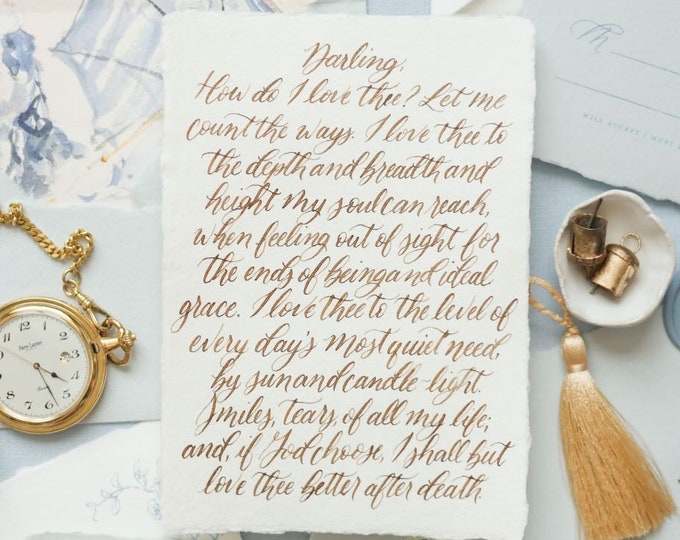 Darling,
How do I love thee? Let me
count the ways. I love thee to
the depth and breadth and
height My soul can reach,
when feeling out of sight for
the ends of being and ideal
grace. I love thee to the level of
every day's most quiet need,
by sun and candle-light.
Smiles, tears, of all my life;
and, if God choose, I shall but
love thee better after death
M
WILL ACCEPT / MUST
12
1
2
3
4
5
6
7
8
9
10
11